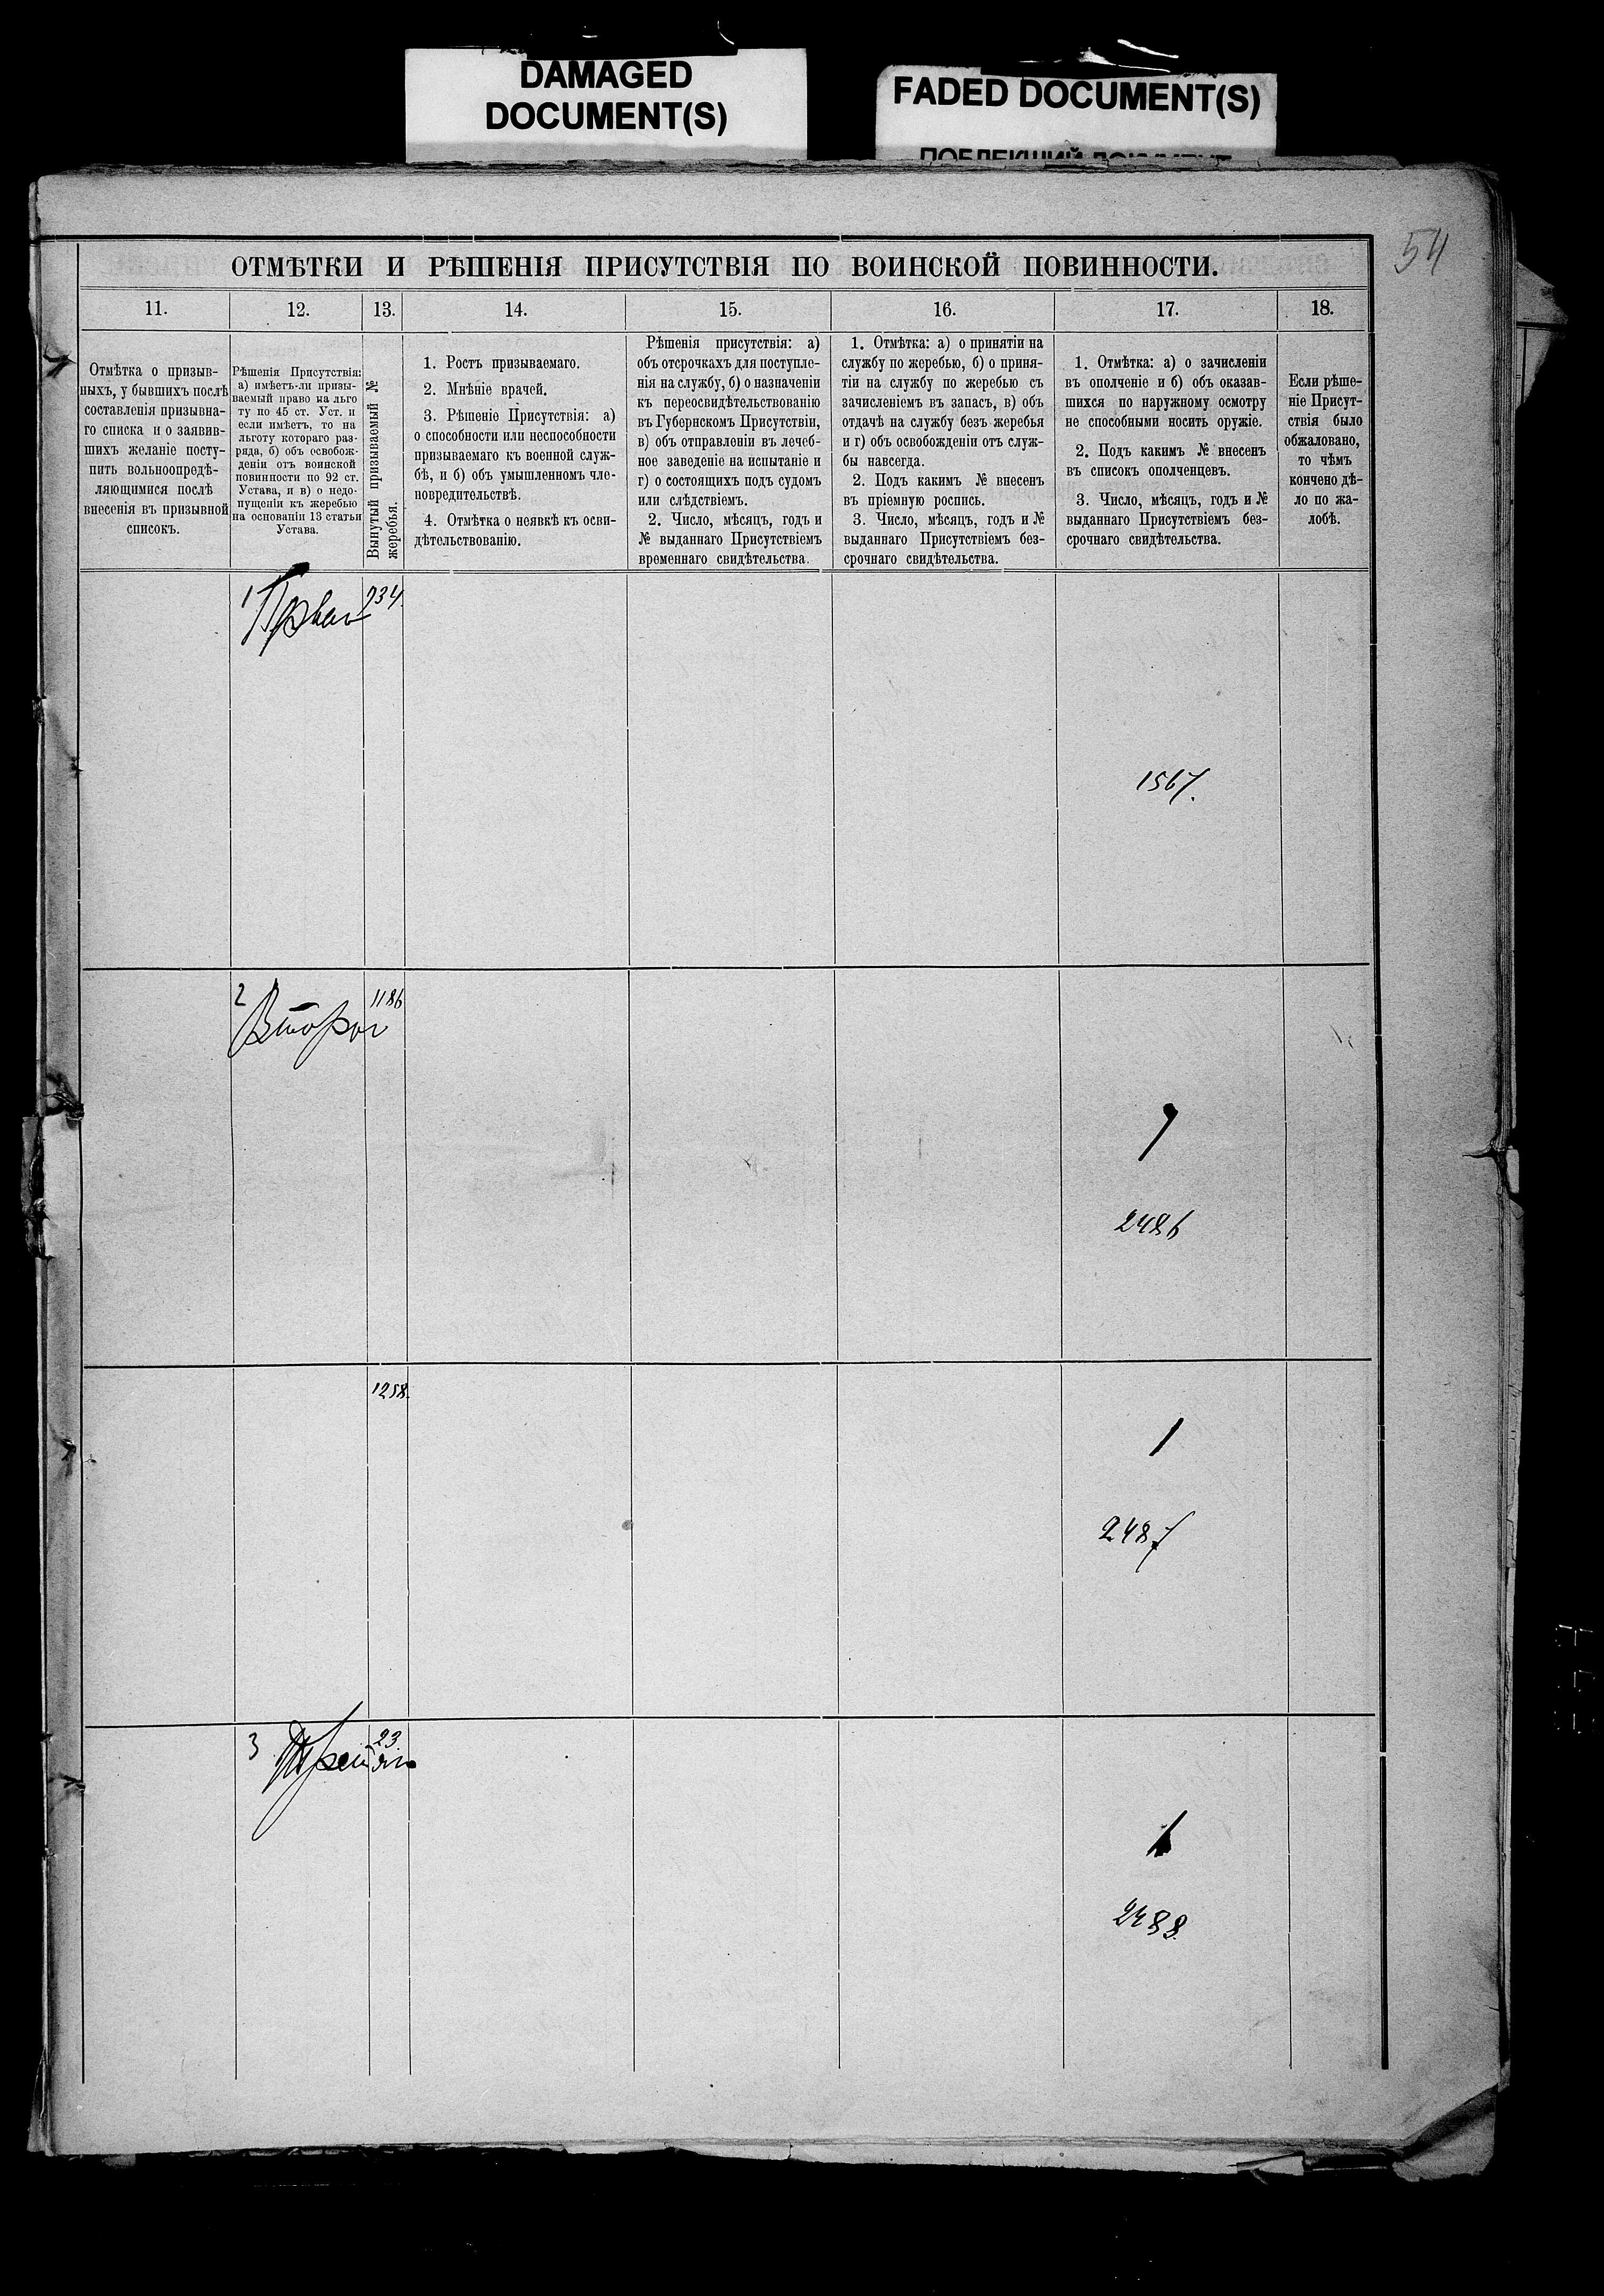 DAMAGED
DOCUMENT(S)
FADED DOCUMENT(S)
54
ОТМѢТКИ И РѢШЕНІЯ ПРИСУТСТВІЯ ПО ВОИНСКОЙ ПОВИННОСТИ.
11.
12.
13.
14.
15.
16.
17.
18.
Отмѣтка о призыв-
ныхъ, у бывшихъ послѣ
составленія призывна-
го списка и о заявив-
шихъ желаніе посту-
пить вольноопредѣ-
ляющимися послѣ
внесенія въ призывной
списокъ.
Рѣшенія Присутствія:
а) имѣетъ-ли призы-
ваемый право на льго
ту по 45 ст. Уст. и
если имѣетъ, то на
льготу котораго раз-
ряда, б) объ освобож-
деніи отъ воинской
повинности по 92 ст.
Устава, и в) о недо-
пущеніи къ жеребью
на основаніи 13 статьи
Устава.
Вынутый призываемый №
жеребья.
1. Ростъ призываемаго.
2. Мнѣніе врачей.
3. Рѣшеніе Присутствія: а)
о способности или неспособности
призываемаго къ военной служ-
бѣ, и б) объ умышленномъ чле-
новредительствѣ.
4. Отмѣтка о неявкѣ къ осви-
дѣтельствованію.
Рѣшенія присутствія: а)
объ отсрочкахъ для поступле-
нія на службу, б) о назначеніи
къ переосвидѣтельствованію
въ Губернскомъ Присутствіи,
в) объ отправленіи въ лечеб-
ное заведеніе на испытаніе и
г) о состоящихъ подъ судомъ
или слѣдствіемъ.
2. Число, мѣсяцъ, годъ и
№ выданнаго Присутствіемъ
временнаго свидѣтельства.
1. Отмѣтка: а) о принятіи на
службу по жеребью, б) о приня-
тіи на службу по жеребью съ
зачисленіемъ въ запасъ, в) объ
отдачѣ на службу безъ жеребья
и г) объ освобожденіи отъ служ-
бы навсегда.
2. Подъ какимъ № внесенъ
въ пріемную роспись.
3. Число, мѣсяцъ, годъ и №
выданнаго Присутствіемъ без-
срочнаго свидѣтельства.
1. Отмѣтка: а) о зачисленіи
въ ополченіе и б) объ оказав-
шихся по наружному осмотру
не способными носить оружіе.
2. Подъ какимъ № внесенъ
въ списокъ ополченцевъ.
3. Число, мѣсяцъ, годъ и №
выданнаго Присутствіемъ без-
срочнаго свидѣтельства.
Если рѣше-
ніе Присут-
ствія было
обжаловано,
то чѣмъ
кончено дѣ-
ло по жа-
лобѣ.
1
234.
1567.
2
1186
Второй
2486
1258.
1
2487
3
23
1
2488.